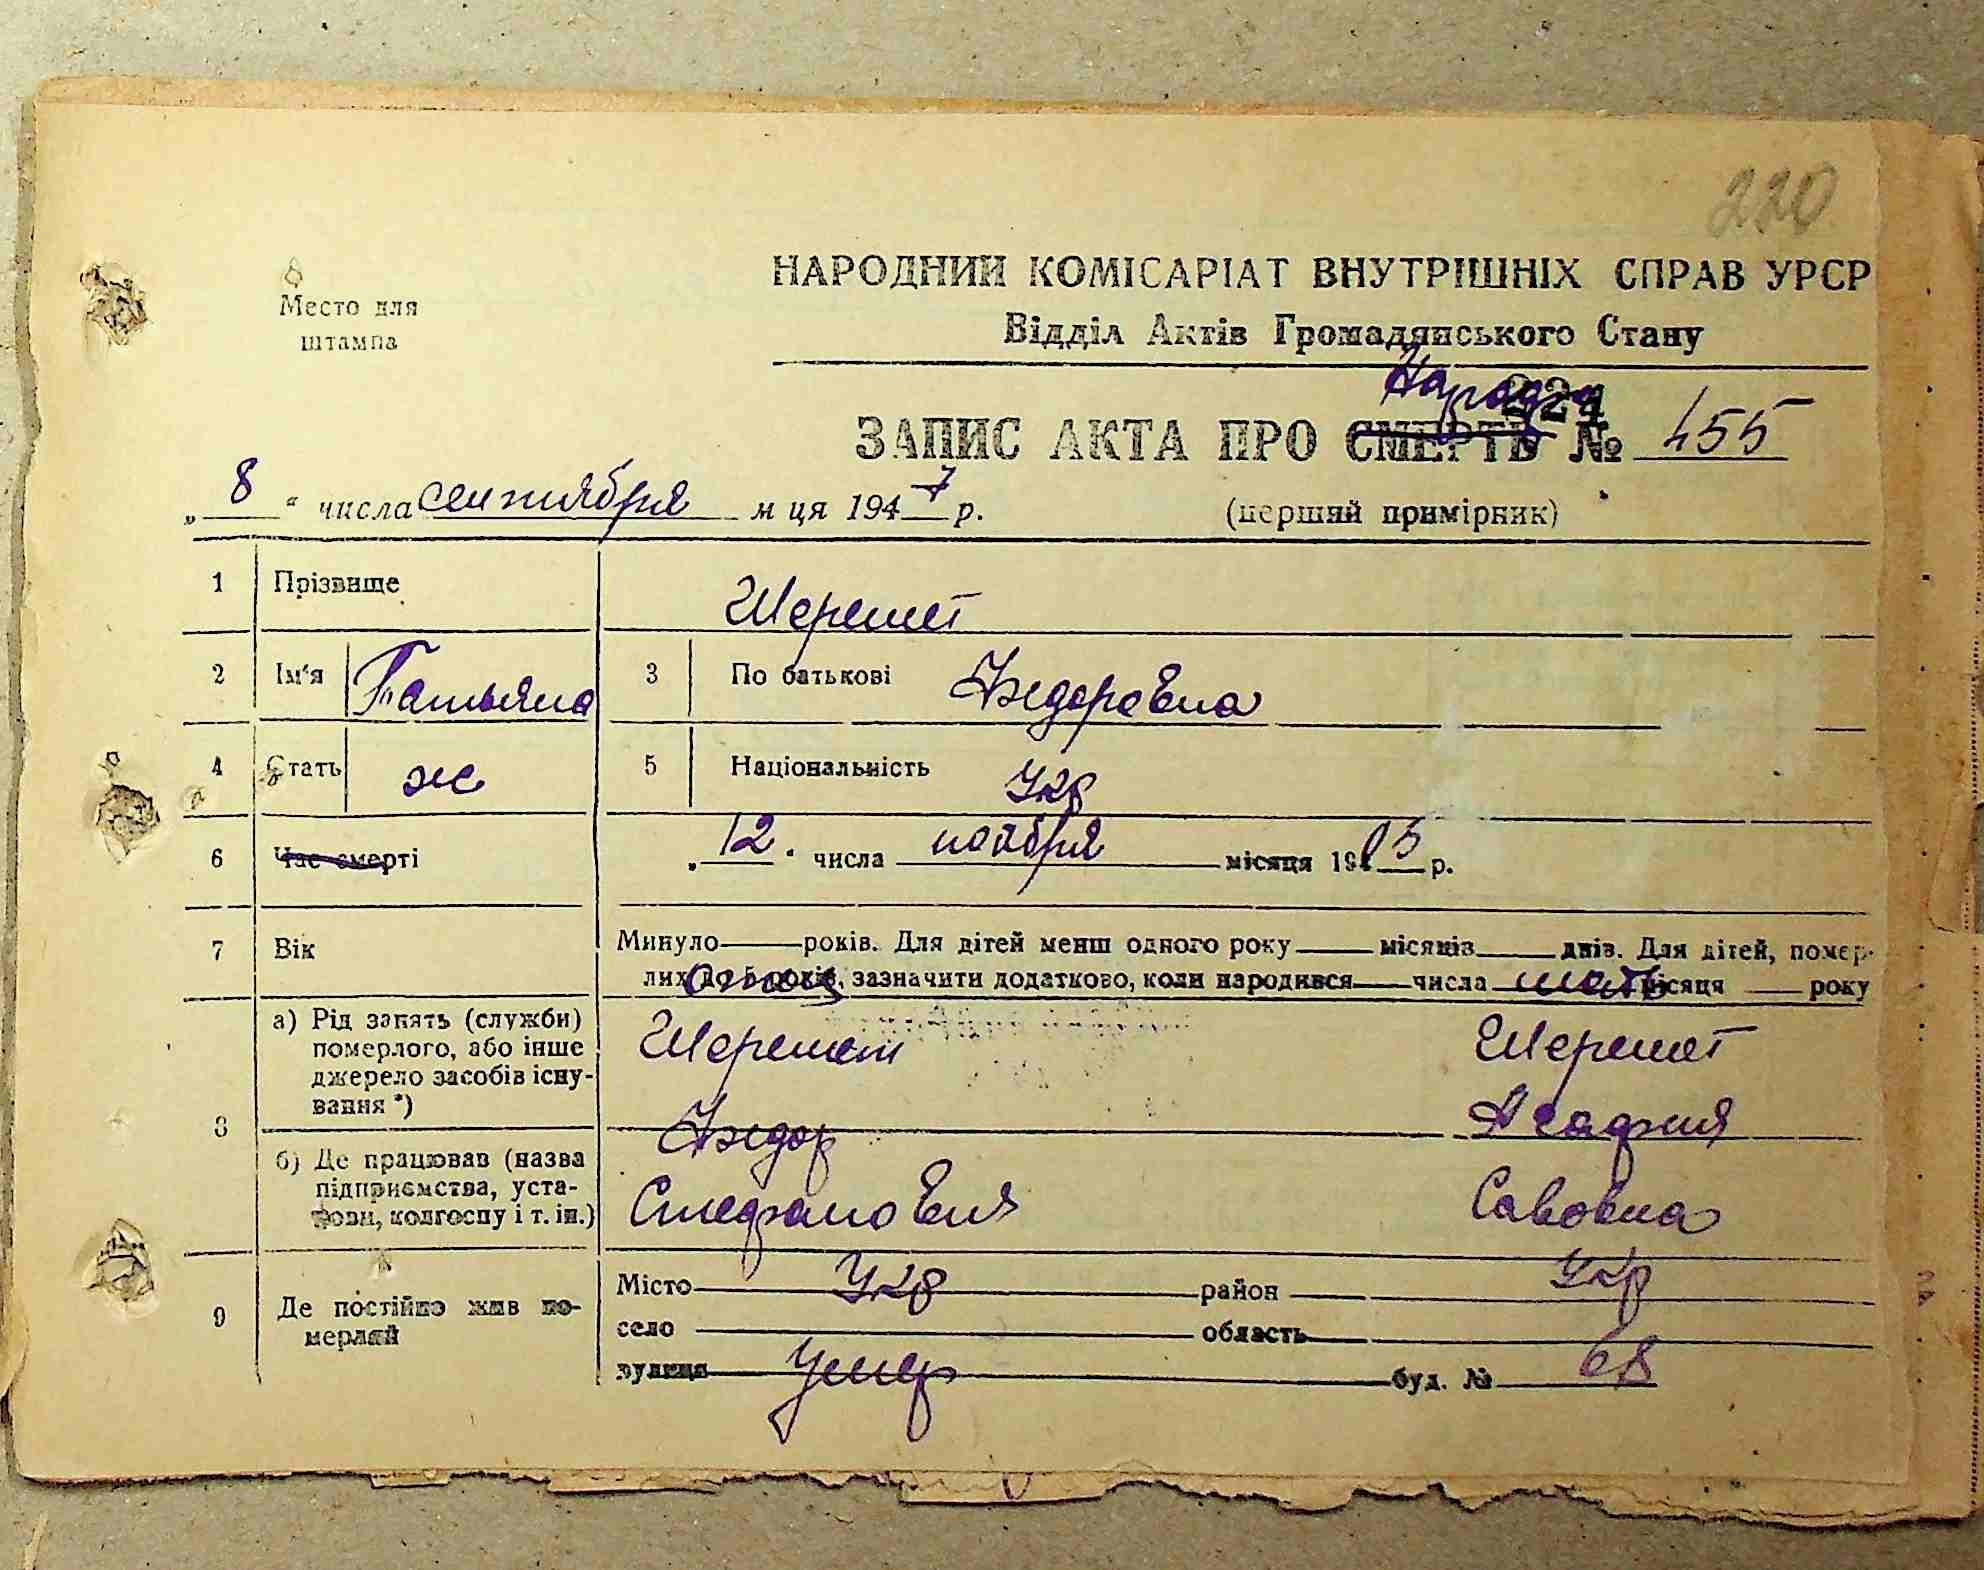 220
НАРОДНИЙ КОМІСАРІАТ ВНУТРІШНІХ СПРАВ УРСР
Место для
штампа
Відділ Актів Громадянського Стану
221
ЗАПИС АКТА ПРО СМЕРТЬ № 455
„ 8 “ числа сентября м ця 1947 р.
(перший примірник)
1 Прізвище Шеремет
2 Ім'я Татьяна 3 По батькові Федоровна
4 Стать ж 5 Національність Укр
6 Час смерті „ 12 “ числа ноября місяця 1905 р.
7 Вік Минуло років. Для дітей менш одного року місяців днів. Для дітей, помер-
лих до 5 років, зазначити додатково, коли народився числа місяця року
отец мать
8 а) Рід занять (служби)
померлого, або інше
джерело засобів існу-
вання *)
Шеремет Шеремет
Федор Агафия
б) Де працював (назва
підприємства, уста-
нови, колгоспу і т. ін.)
Стефанович Савовна
9 Де постійно жив по-
мерлий
Місто Укр район Укр
село область
вулиця умер буд. № 68